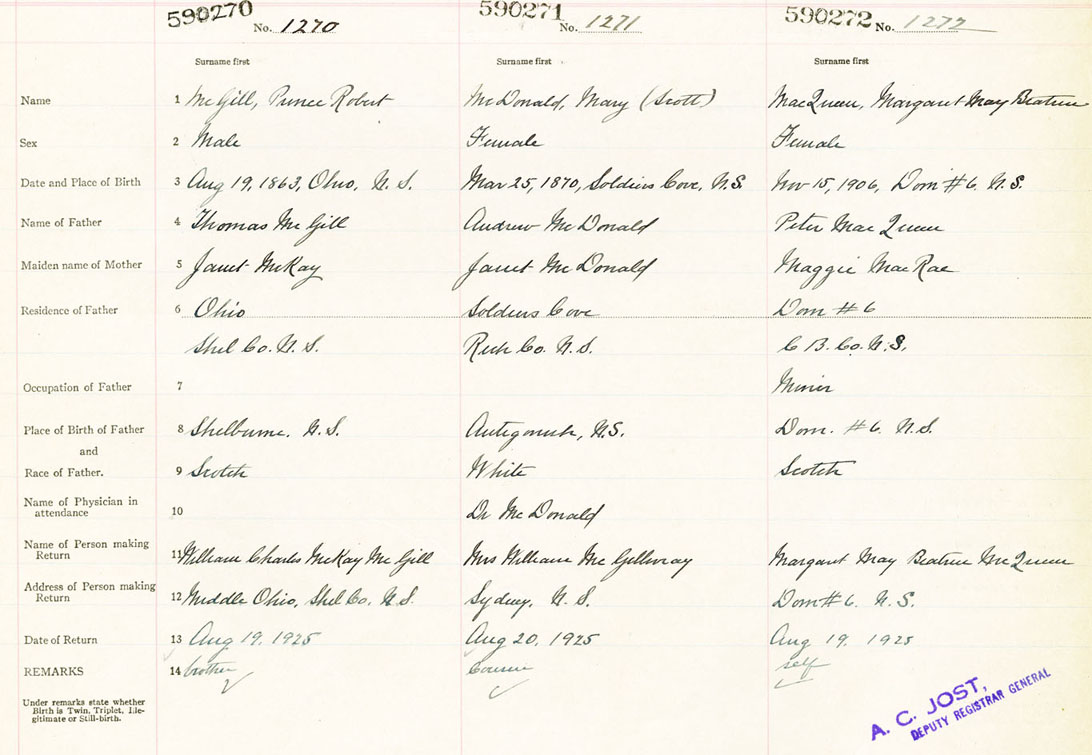 590270 No. 1270 590271 No. 1271 590272 No. 1272
Surname first Surname first Surname first
Name 1 McGill, Prince Robert McDonald, Mary (Scott) MacQueen, Margaret May Beatrice
Sex 2 Male Female Female
Date and Place of Birth 3 Aug 19, 1863, Ohio, N.S. Mar 25, 1870, Soldiers Cove, N.S. Nov 15, 1906, Dom #6 N.S.
Name of Father 4 Thomas McGill Andrew McDonald Peter MacQueen
Maiden name of Mother 5 Janet McKay Janet McDonald Maggie MacRae
Residence of Father 6 Ohio Soldiers Cove Dom #6
Shel Co. N.S. Rich Co. N.S. C.B. Co. N.S.
Occupation of Father 7 Miner
Place of Birth of Father 8 Shelburne. N.S. Antigonish, N.S. Dom. #6 N.S.
and
Race of Father. 9 Scotch White Scotch
Name of Physician in
attendance 10 Dr McDonald
Name of Person making
Return 11 William Charles McKay McGill Mrs William McGillivray Margaret May Beatrice McQueen
Address of Person making
Return 12 Middle Ohio, Shel Co. N.S. Sydney, N.S. Dom #6. N.S.
Date of Return 13 Aug 19. 1925 Aug 20, 1925 Aug 19. 1925
REMARKS 14 brother Cousin self
Under remarks state whether
Birth is Twin, Triplet, Ille-
gitimate or Still-birth.
A. C. JOST,
DEPUTY REGISTRAR GENERAL